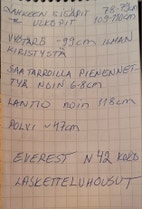 LAHKEEN SISÄPIT 78-79cm
" ULKOPIT 109-110cm
VYÖTÄRÖ ~99cm ILMAN
KIRISTYSTÄ
SÄÄTÄRÖILLÄ PIENENNET-
TYNÄ NOIN 6-8cm
LANTIO NOIN 118cm
POLVI ~47cm
EVEREST N 42 KOKO
LASKETTELUHOUSUT